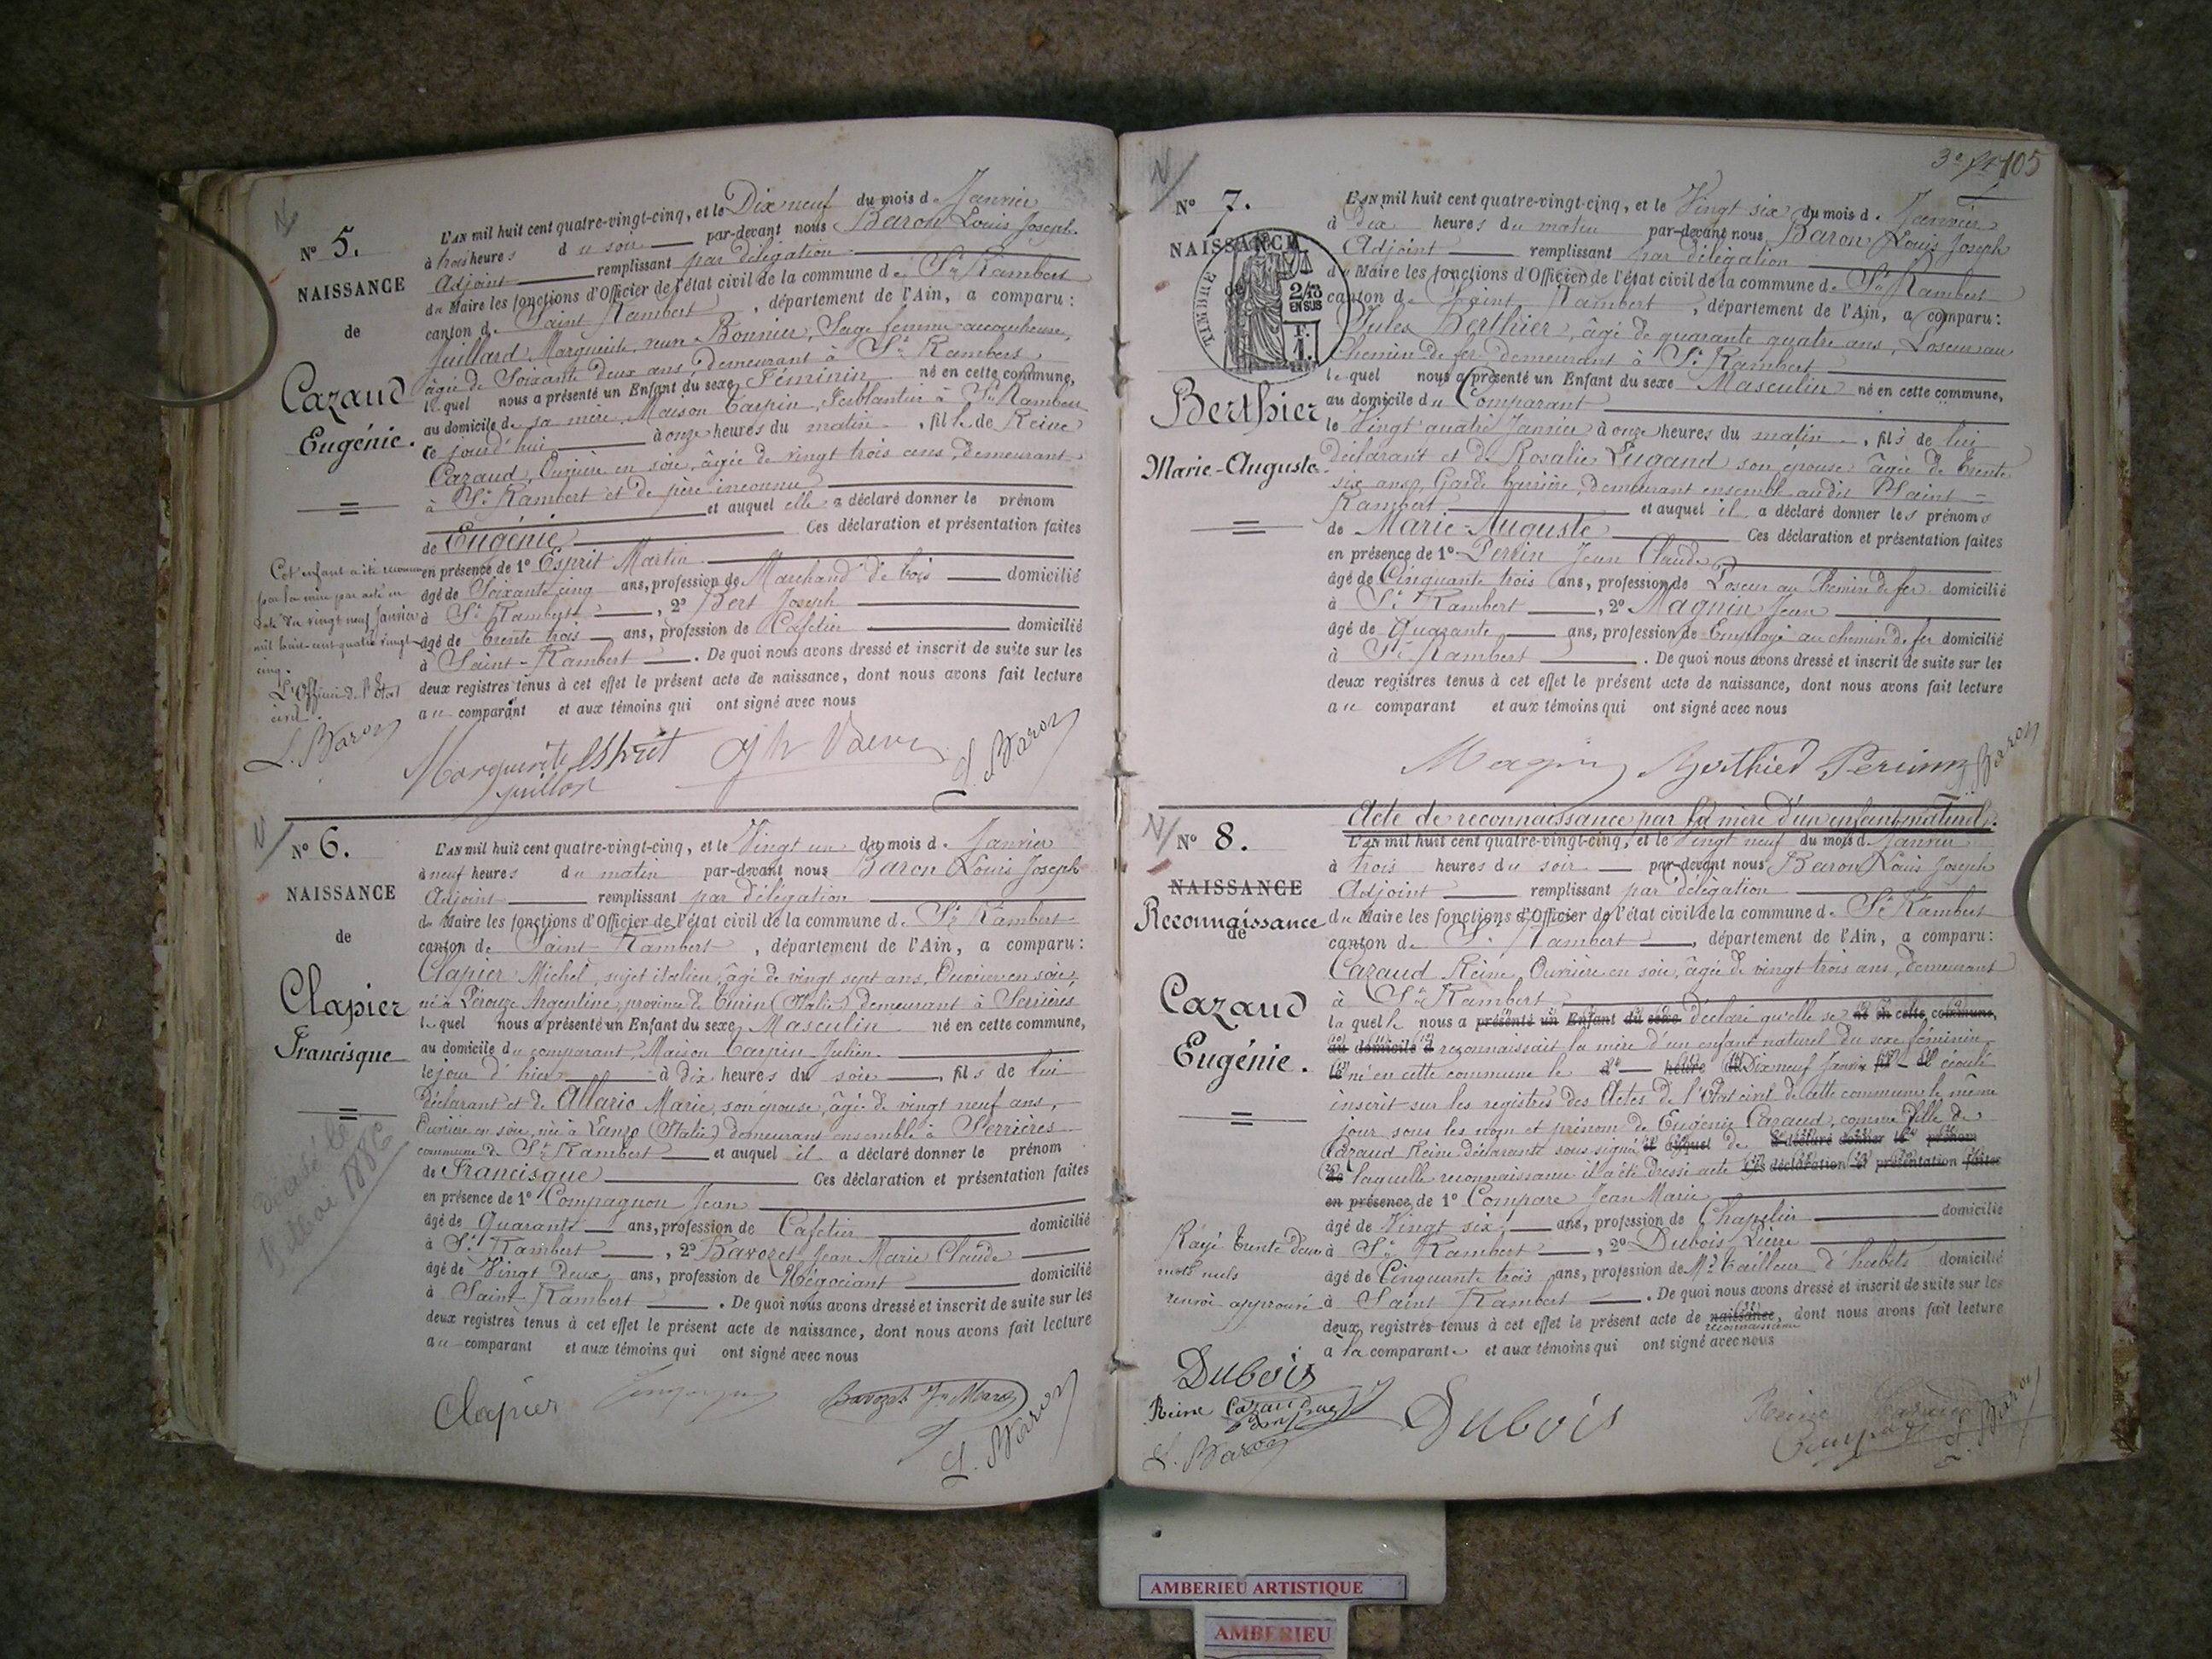 N
N° 5.
NAISSANCE
de
Cazaud
Eugénie.
L'AN mil huit cent quatre-vingt-cinq, et le Dix neuf du mois de Janvier
à trois heures du soir par-devant nous Baron Louis Joseph
Adjoint remplissant par délégation
du Maire les fonctions d'Officier de l'état civil de la commune de St Rambert
canton de Saint Rambert, département de l'Ain, a comparu:
Juillard Marguerite, veuve Bonnier, Sage femme accoucheuse,
âgée de Soixante deux ans, demeurant à St Rambert
lequel nous a présenté un Enfant du sexe Féminin né en cette commune,
au domicile de sa mère, Maison Carpin, Ferblantier à St Rambert
ce jourd'hui à onze heures du matin, fille de Reine
Cazaud, Ouvrière en soie, âgée de vingt trois ans, demeurant
à St Rambert et de père inconnu
et auquel elle a déclaré donner le prénom
de Eugénie Ces déclaration et présentation faites
en présence de 1° Esprit Martin
âgé de Soixante cinq ans, profession de Marchand de bois domicilié
à St Rambert, 2° Bert Joseph
âgé de trente trois ans, profession de Cafetier domicilié
à Saint-Rambert. De quoi nous avons dressé et inscrit de suite sur les
deux registres tenus à cet effet le présent acte de naissance, dont nous avons fait lecture
au comparant et aux témoins qui ont signé avec nous
Cet enfant a été reconnu
par la mère par acte en
date du vingt neuf Janvier
mil huit cent quatre vingt
cinq.
L'Officier de l'Etat
civil.
L. Baron
Marguerite Esprit L. Baron
juillar
N
N° 6.
NAISSANCE
de
Clapier
Francisque
L'AN mil huit cent quatre-vingt-cinq, et le Vingt un du mois de Janvier
à neuf heures du matin par-devant nous Baron Louis Joseph
Adjoint remplissant par délégation
du Maire les fonctions d'Officier de l'état civil de la commune de St Rambert
canton de Saint-Rambert, département de l'Ain, a comparu:
Clapier Michel, sujet italien, âgé de vingt sept ans, Ouvrier en soie,
né à Pérouze Argentine, province de Turin (Italie) demeurant à Serrières
lequel nous a présenté un Enfant du sexe Masculin né en cette commune,
au domicile du comparant, Maison Carpin Julien
le jour d'hier à dix heures du soir, fils de lui
Déclarant et de Allario Marie, son épouse, âgée de vingt neuf ans,
Ouvrière en soie, née à Lanzo (Italie) demeurant ensemble à Serrières
commune de St Rambert et auquel il a déclaré donner le prénom
de Francisque Ces déclaration et présentation faites
en présence de 1° Compagnon Jean
âgé de Quarante ans, profession de Cafetier domicilié
à St Rambert, 2° Bavozet Jean Marie Claude
âgé de Vingt deux ans, profession de Négociant domicilié
à Saint-Rambert. De quoi nous avons dressé et inscrit de suite sur les
deux registres tenus à cet effet le présent acte de naissance, dont nous avons fait lecture
au comparant et aux témoins qui ont signé avec nous
Décédé le
1886
Clapier Bavozet Jn Marie L. Baron
105
N
N° 7.
NAISSANCE
de
TIMBRE
2/10
EN SUS
F.
1.
Berthier
Marie-Auguste
L'AN mil huit cent quatre-vingt-cinq, et le Vingt six du mois de Janvier
à dix heures du matin par-devant nous Baron Louis Joseph
Adjoint remplissant par délégation
du Maire les fonctions d'Officier de l'état civil de la commune de St Rambert
canton de Saint Rambert, département de l'Ain, a comparu:
Jules Berthier, âgé de quarante quatre ans, Poseur au
Chemin de fer demeurant à St Rambert
lequel nous a présenté un Enfant du sexe Masculin né en cette commune,
au domicile du Comparant
le Vingt quatre Janvier à onze heures du matin, fils de lui
déclarant et de Rosalie Lugand son épouse âgée de trente
six ans, Garde barrière, demeurant ensemble audit Saint-
Rambert et auquel il a déclaré donner les prénoms
de Marie-Auguste Ces déclaration et présentation faites
en présence de 1° Perrin Jean Claude
âgé de Cinquante trois ans, profession de Poseur au Chemin de fer domicilié
à St Rambert, 2° Magnin Jean
âgé de Quarante ans, profession de Employé au chemin de fer domicilié
à St Rambert. De quoi nous avons dressé et inscrit de suite sur les
deux registres tenus à cet effet le présent acte de naissance, dont nous avons fait lecture
au comparant et aux témoins qui ont signé avec nous
Magnin Berthier Perrin Baron
Acte de reconnaissance par la mère d'un enfant naturel.
N
N° 8.
NAISSANCE
Reconnaissance
de
Cazaud
Eugénie.
L'AN mil huit cent quatre-vingt-cinq, et le Vingt neuf du mois de Janvier
à trois heures du soir par-devant nous Baron Louis Joseph
Adjoint remplissant par délégation
du Maire les fonctions d'Officier de l'état civil de la commune de St Rambert
canton de St Rambert, département de l'Ain, a comparu:
Cazaud Reine, Ouvrière en soie, âgée de vingt trois ans, demeurant
à St Rambert
laquelle nous a présenté un Enfant du sexe déclaré qu'elle se né en cette commune,
au domicile d reconnaissait la mère d'un enfant naturel du sexe féminin
le né en cette commune le à heure du Dix neuf Janvier fil de écoulé
inscrit sur les registres des Actes de l'Etat civil de cette commune le même
jour sous les nom et prénom de Eugénie Cazaud, comme fille de
Cazaud Reine déclarante sous signé et auquel de a déclaré donner le prénom
de laquelle reconnaissance il a été dressé acte Ces déclaration et présentation faites
en présence de 1° Compare Jean Marie
âgé de Vingt six ans, profession de Chapelier domicilié
à St Rambert, 2° Dubois Pierre
âgé de Cinquante trois ans, profession de Md Tailleur d'habits domicilié
à Saint Rambert. De quoi nous avons dressé et inscrit de suite sur les
deux registres tenus à cet effet le présent acte de naissance, dont nous avons fait lecture
reconnaissance
à la comparante et aux témoins qui ont signé avec nous
Rayé trente deux
mots nuls
renvoi approuvé
Dubois
Reine Cazaud
L. Baron
Dubois
Reine Cazaud
L. Baron
AMBERIEU ARTISTIQUE
AMBERIEU